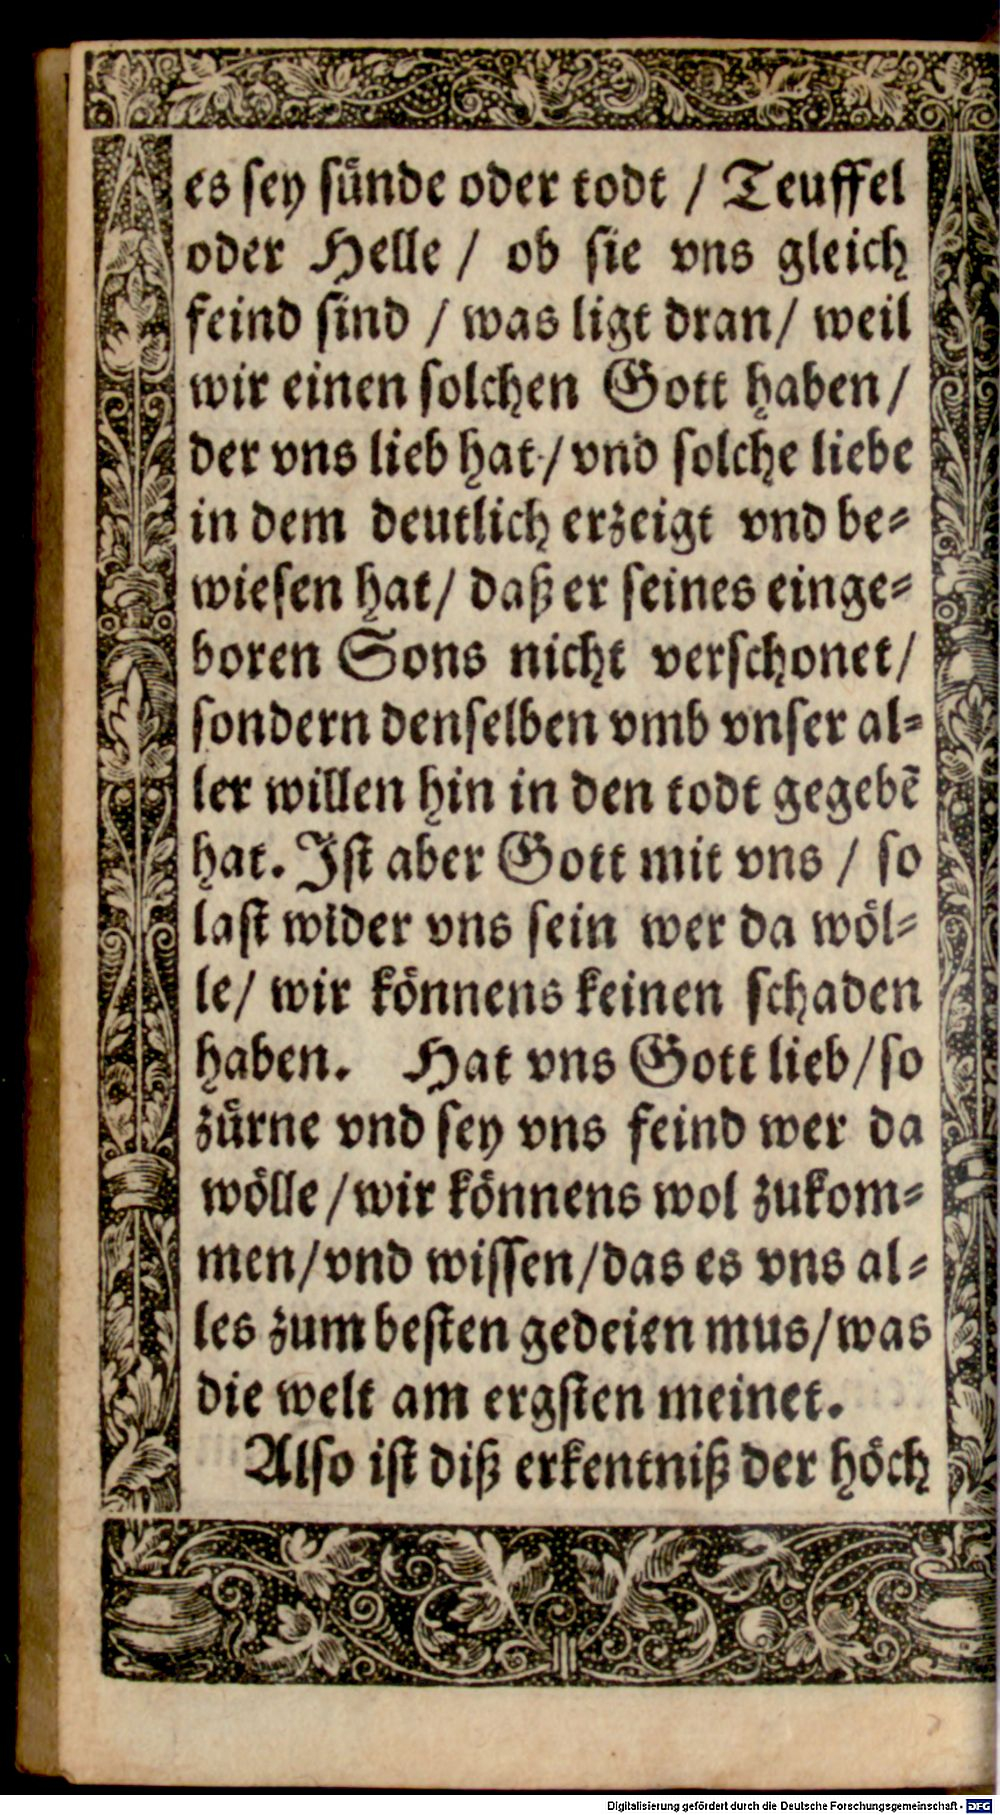 es sey sünde oder todt / Teuffel
oder Helle / ob sie vns gleich
feind sind / was ligt dran / weil
wir einen solchen Gott haben /
der vns lieb hat / vnd solche liebe
in dem deutlich erzeigt vnd be⸗
wiesen hat / daß er seines einge⸗
boren Sons nicht verschonet /
sondern denselben vmb vnser al⸗
ler willen hin in den todt gegebẽ
hat. Ist aber Gott mit vns / so
last wider vns sein wer da wöl⸗
le / wir könnens keinen schaden
haben. Hat vns Gott lieb / so
zürne vnd sey vns feind wer da
wölle / wir könnens wol zukom⸗
men / vnd wissen / das es vns al⸗
les zum besten gedeien mus / was
die welt am ergsten meinet.
Also ist diß erkentniß der höch
Digitalisierung gefördert durch die Deutsche Forschungsgemeinschaft - DFG